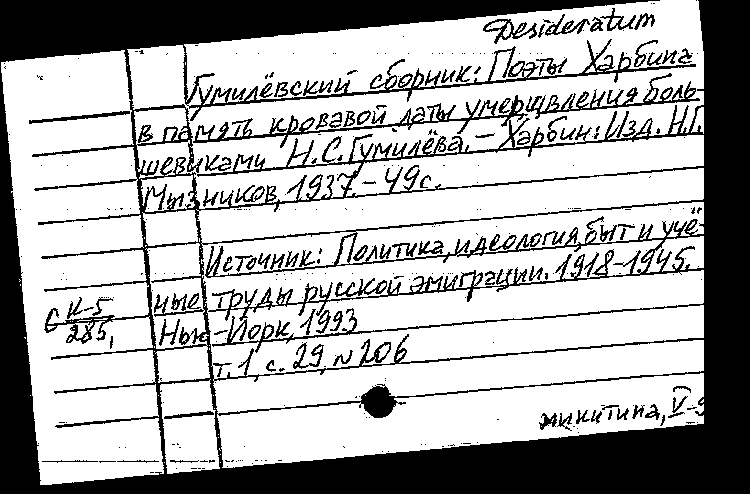 Desideratum
Гумилёвский сборник: Поэты Харбина
в память кровавой даты умерщвления боль-
шевиками Н.С. Гумилёва. – Харбин: Изд. Н.Г.
Мызников, 1937. – 49 с.
Источник: Политика, идеология, быт и учё-
ные труды русской эмиграции. 1918–1945.
Нью-Йорк, 1993
т. 1, с. 29, № 206
С К-5
285,
микитина, V-9